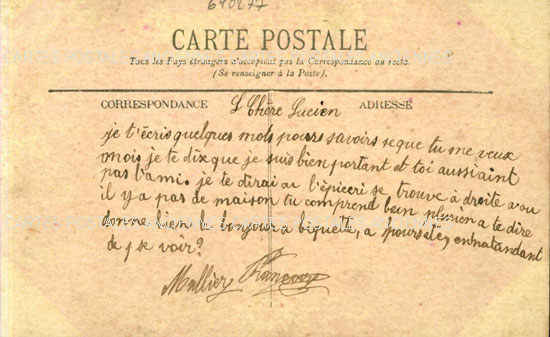 640277
CARTE POSTALE
Tous les Pays étrangers n'acceptent pas la Correspondance au recto.
(Se renseigner à la Poste).
CORRESPONDANCE
ADRESSE
Chère Lucien
je t'écris quelques mots pours savoirs se que tu me veux
mois je te dix que je suis bien portant et toi aussi
pas l'ami. je te dirai ou l'épiceri se trouve à droite
il y a pas de maison tu comprend bien plusien a te dire
donne bien le bonjour a biquette, a
de se voir?
Mallier François